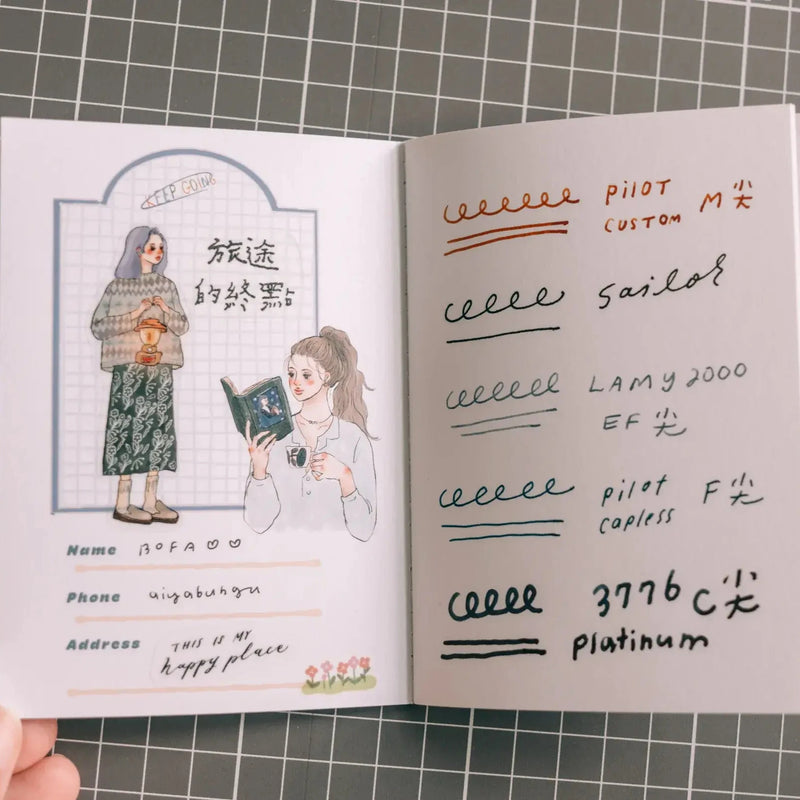 KEEP GOING
旅途
的終點
Name BOFA ♡♡
Phone aiyabungu
Address THIS IS MY
happy place
PILOT
CUSTOM M尖
Sailor
LAMY 2000
EF尖
pilot
capless F尖
3776 C尖
platinum